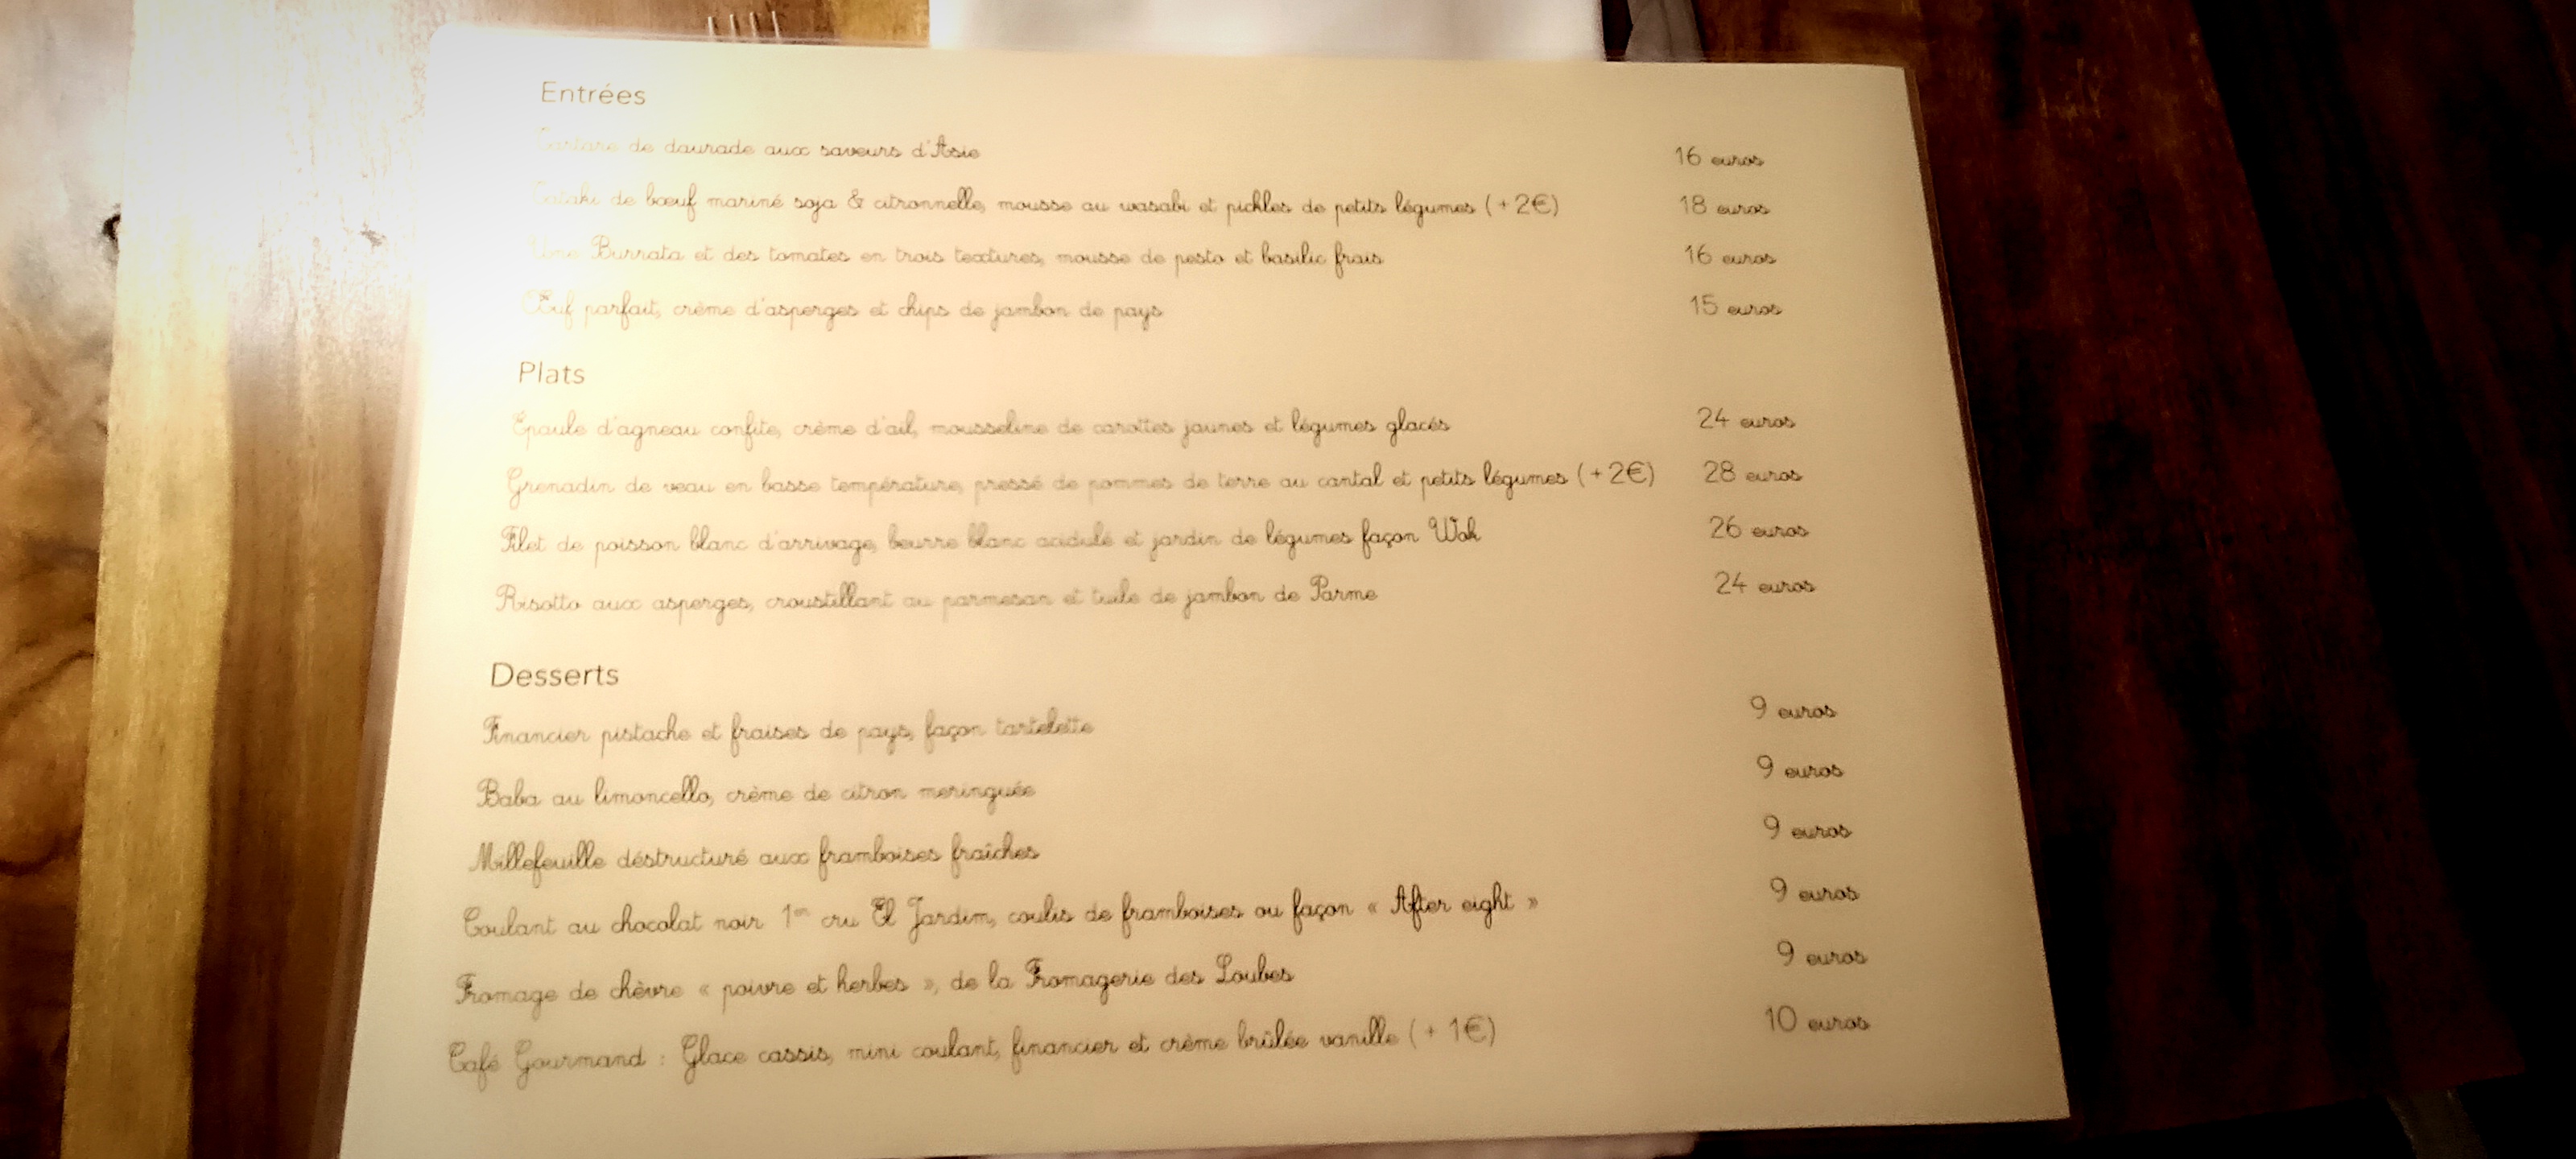 Entrées
Tartare de daurade aux saveurs d'Asie 16 euros
Tataki de bœuf mariné soja & citronnelle, mousse au wasabi et pickles de petits légumes (+2€) 18 euros
Une Burrata et des tomates en trois textures, mousse de pesto et basilic frais 16 euros
Œuf parfait, crème d'asperges et chips de jambon de pays 15 euros
Plats
Epaule d'agneau confite, crème d'ail, mousseline de carottes jaunes et légumes glacés 24 euros
Grenadin de veau en basse température, pressé de pommes de terre au cantal et petits légumes (+2€) 28 euros
Filet de poisson blanc d'arrivage, beurre blanc acidulé et jardin de légumes façon Wok 26 euros
Risotto aux asperges, croustillant au parmesan et tuile de jambon de Parme 24 euros
Desserts
Financier pistache et fraises de pays, façon tartelette 9 euros
Baba au limoncello, crème de citron meringuée 9 euros
Millefeuille déstructuré aux framboises fraîches 9 euros
Coulant au chocolat noir 1er cru El Jardim, coulis de framboises ou façon « After eight » 9 euros
Fromage de chèvre « poivre et herbes », de la Fromagerie des Loubes 9 euros
Café Gourmand : Glace cassis, mini coulant, financier et crème brûlée vanille (+ 1€) 10 euros